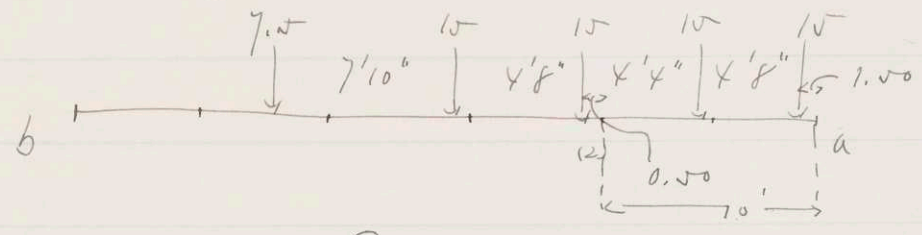 7.5 15 15 15 15
7'10" 4'8" 4'4" 4'8" 1.50
b a
(2)
0.50
10'